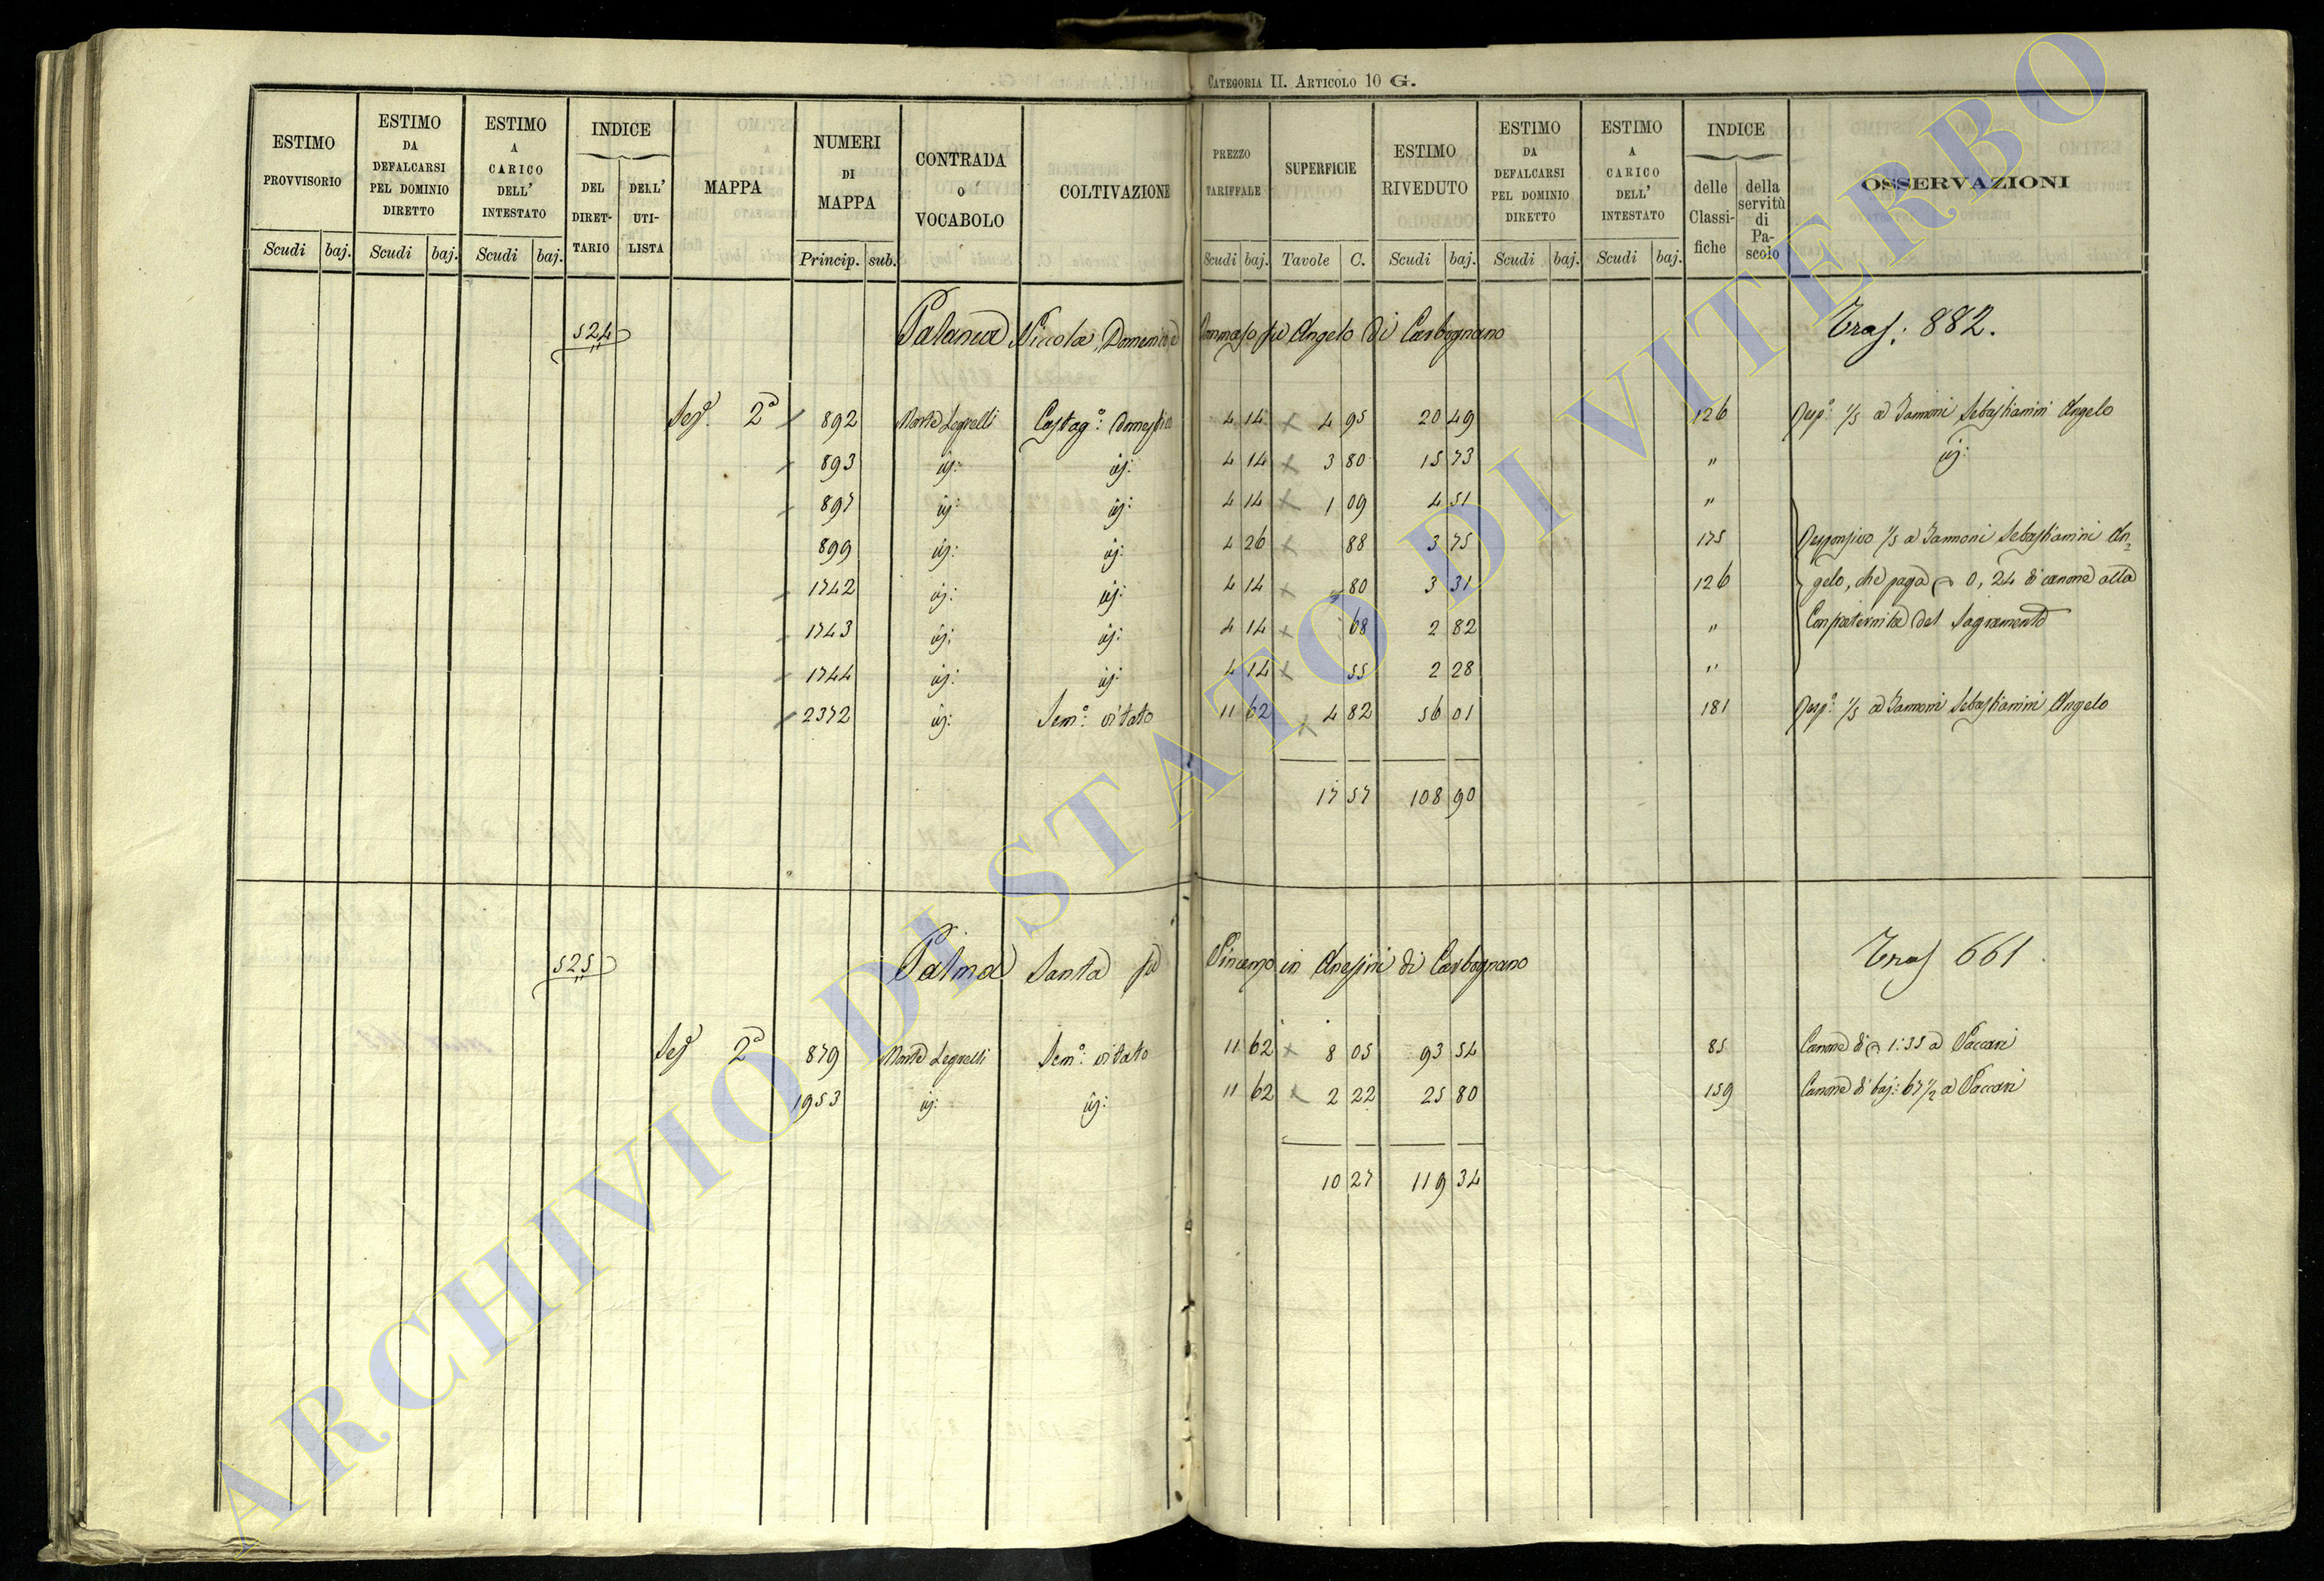 CATEGORIA II. ARTICOLO 10 G.
ESTIMO PROVVISORIO
ESTIMO DA DEFALCARSI PEL DOMINIO DIRETTO
ESTIMO A CARICO DELL' INTESTATO
INDICE
DEL DIRETTARIO
DELL' UTILISTA
MAPPA
NUMERI DI MAPPA
CONTRADA O VOCABOLO
COLTIVAZIONE
PREZZO TARIFFALE
SUPERFICIE
ESTIMO RIVEDUTO
ESTIMO DA DEFALCARSI PEL DOMINIO DIRETTO
ESTIMO A CARICO DELL' INTESTATO
INDICE
delle Classifiche
della servitù di Pascolo
OSSERVAZIONI
Scudi baj. Scudi baj. Scudi baj. Princip. sub. Scudi baj. Tavole C. Scudi baj. Scudi baj. Scudi baj.
524 Nicola, Domenico e Tommaso fu Angelo di Carbognano Tras: 882.
2ª 892 Castag:º Domestico 4 14 4 95 20 49 126 Resp:º 1/5 a Jannoni Sebastianini Angelo
893 id: id: 4 14 3 80 15 73 " id:
897 id: id: 4 14 1 09 4 51 "
899 id: id: 4 26 88 3 75 175 Responsivo 1/5 a Jannoni Sebastianini An=
1742 id: id: 4 14 80 3 31 126 gelo, che paga 0, 24 di canone alla
1743 id: id: 4 14 68 2 82 " Confraternita del Sagramento
1744 id: id: 4 14 55 2 28 "
2372 id: Sem:º vitato 11 62 4 82 56 01 181 Resp:º 1/5 a Jannoni Sebastianini Angelo
17 57 108 90
525 Palma Santa fu Vincenzo in di Carbognano Tras 661.
2ª 879 Sem:º vitato 11 62 8 05 93 54 85 Canone di 1:35 a Vaccari
1953 id: id: 11 62 2 22 25 80 159 Canone di baj: 67 1/2 a Vaccari
10 27 119 34
ARCHIVIO DI STATO DI VITERBO